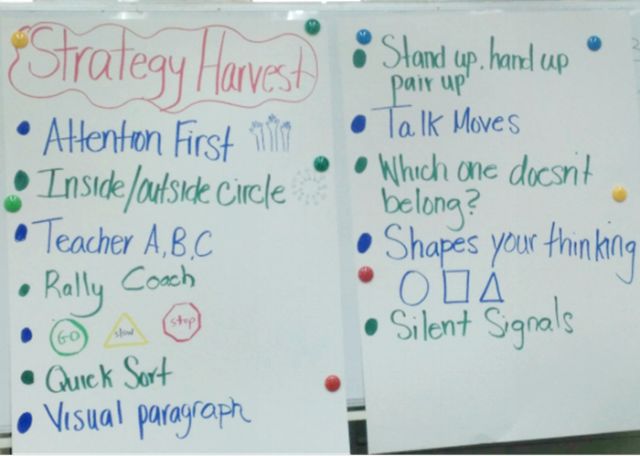 Strategy Harvest
Attention First
Inside/outside circle
Teacher A,B,C
Rally Coach
GO slow stop
Quick Sort
Visual paragraph
Stand up, hand up
pair up
Talk Moves
Which one doesn't
belong?
Shapes your thinking
Silent Signals